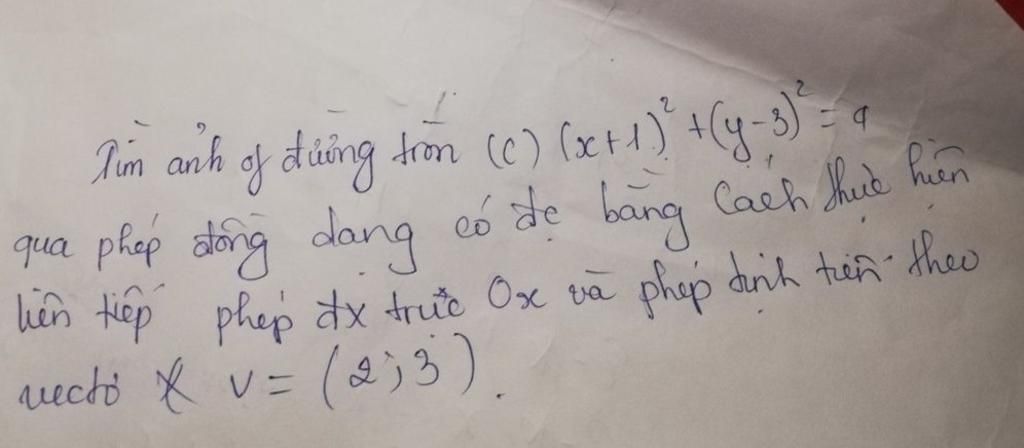 Tìm ảnh of đường tròn (C) (x+1)² + (y-3)² = 9
qua phép đồng dạng có đc bằng cách thực hiện
liên tiếp phép đx trục Ox và phép tịnh tiến theo
vectơ v = (2;3).